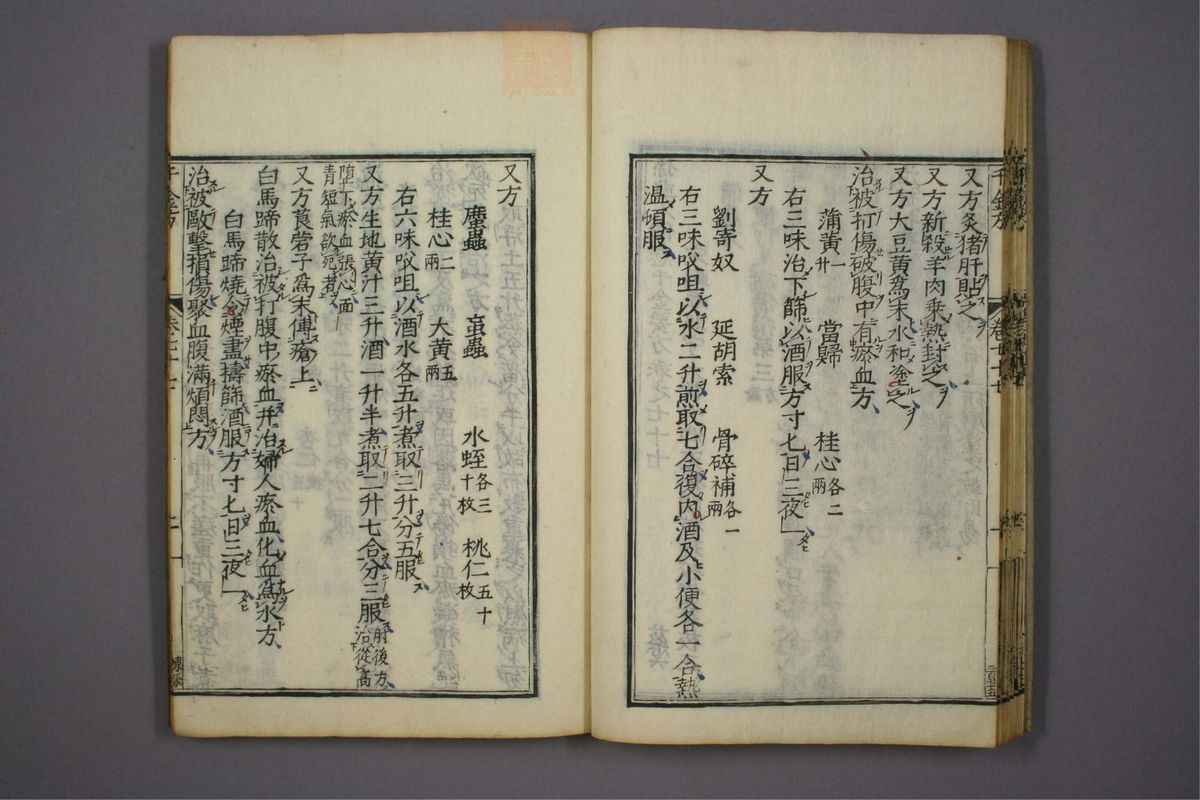 又方灸猪肝貼之
又方新殺羊肉乗熱封之
又方大豆黄為末水和塗之
治被打傷破腹中有瘀血方
蒲黄一升 當歸 桂心各二兩
右三味治下篩以酒服方寸匕日三夜一
又方
劉寄奴 延胡索 骨碎補各一兩
右三味㕮咀以水二升煎取七合復内酒及小便各一合熱
温頓服
又方
䗪蟲 䖟蟲 水蛭各三十枚 桃仁五十枚
桂心二兩 大黄五兩
右六味㕮咀以酒水各五升煮取三升分五服
又方生地黄汁三升酒一升半煮取二升七合分三服肘後方治從高
墮下瘀血張心面青短氣欲死者
又方莨菪子為末傅瘡上
白馬蹄散治被打腹中瘀血并治婦人瘀血化血為水方
白馬蹄燒令煙盡擣篩酒服方寸匕日三夜一
治被毆擊損傷聚血腹滿煩悶方
千金方